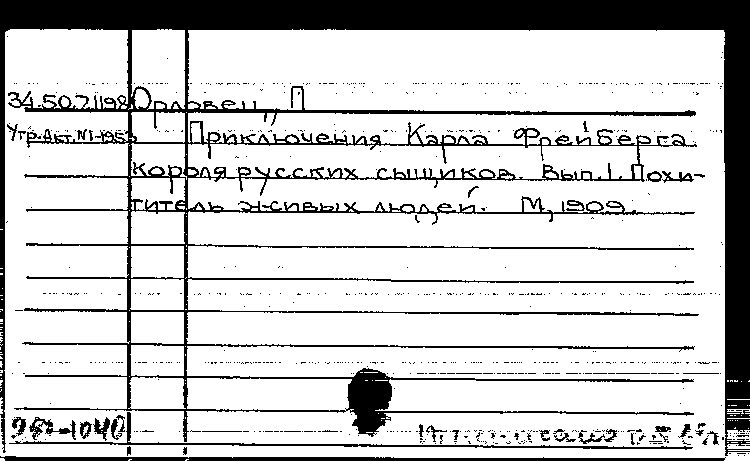 34.50.7/198 Орловец, П
Утр. Акт. N1-1953 Приключения Карла Фрейберга
короля русских сыщиков. Вып. 1. Похи-
титель живых людей. М, 1909.